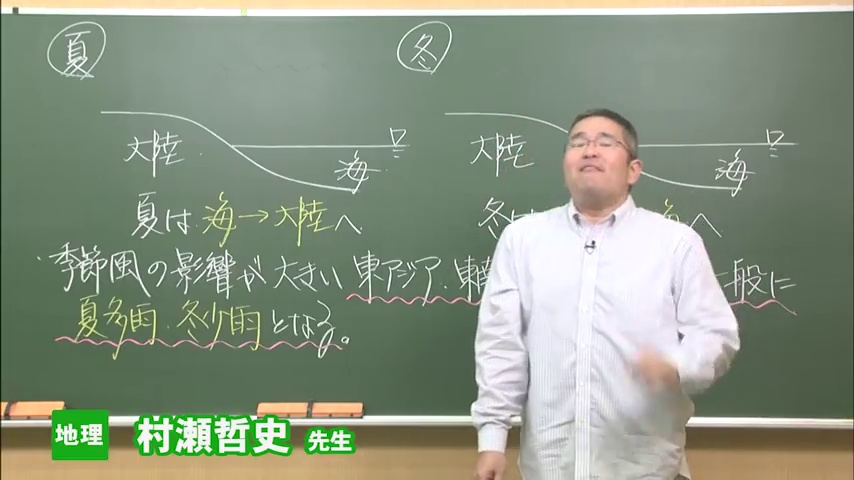 夏
冬
大陸
海
大陸
海
夏は 海→大陸へ
冬は
へ
・季節風の影響が大きい 東アジア・東
般に
夏多雨・冬少雨となる。
地理 村瀬哲史 先生